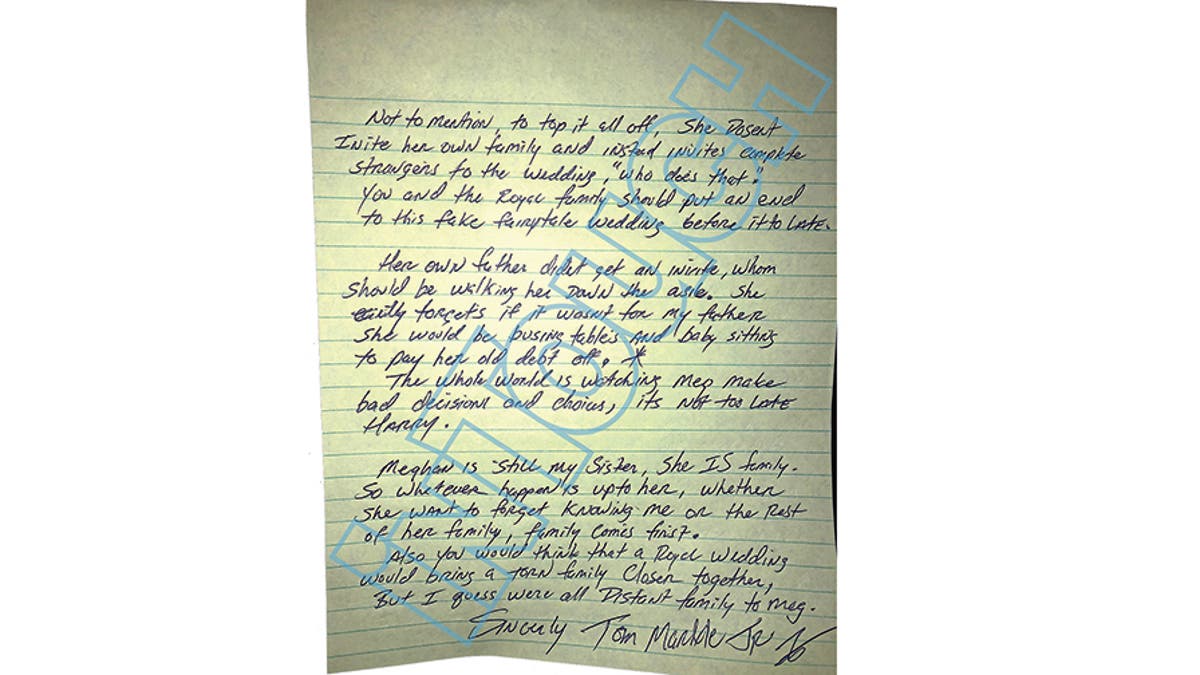 Not to mention, to top it all off, She Dosent
Inite her own family and insted invites complete
strangers to the wedding, "who does that".
You and the Royal family should put an end
to this fake fairytale wedding before it to LATE.
Her own father didnt get an invite, whom
should be walking her Down the asile. She
forgets if it wasnt for my father
She would be busing tables AND baby sitting
to pay her old debt off. *
The whole world is watching Meg make
bad decisions and choices, its NOT too LATE
HARRY.
Meghan is still my Sister, She IS family.
So whatever happen is upto her, whether
She WANT to forget Knowing me or the Rest
of her family, family comes first.
Also you would think that a Royal wedding
would bring a TORN family Closer together,
But I guess were all Distant family to Meg.
Sincerly Tom Markle Jr
InTouch